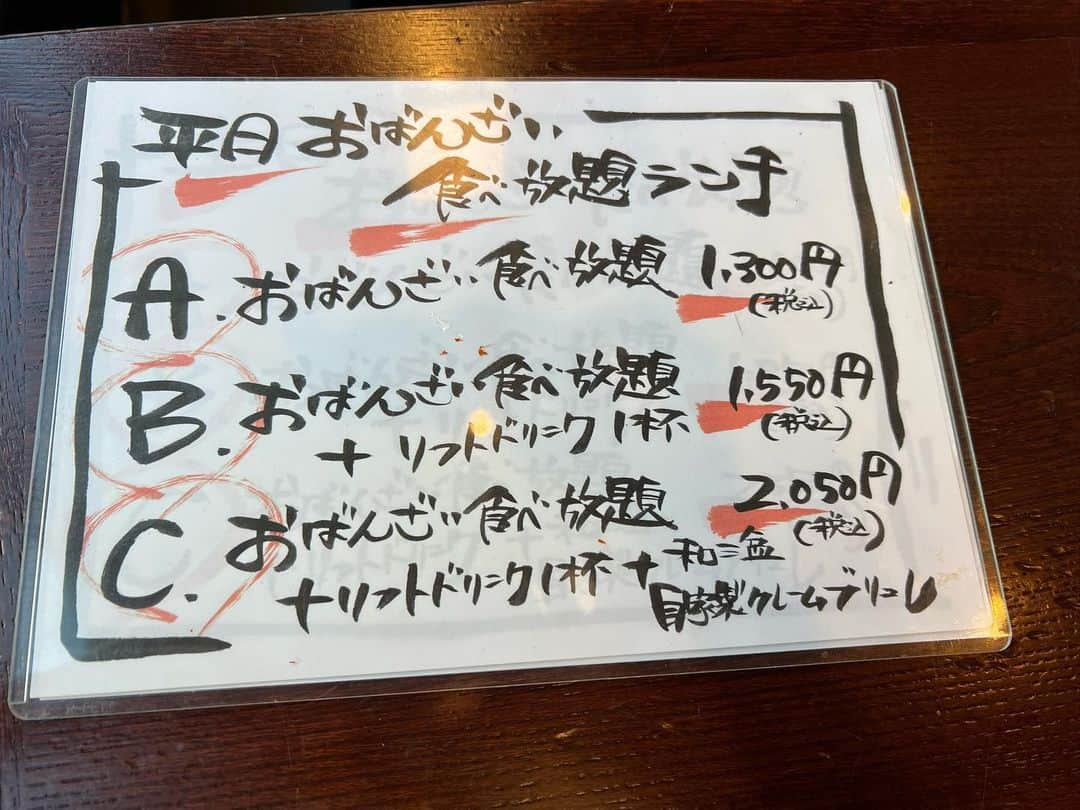 平日 おばんざい
食べ放題ランチ
A. おばんざい食べ放題 1,300円
(税込)
B. おばんざい食べ放題 1,550円
+ ソフトドリンク1杯 (税込)
C. おばんざい食べ放題 2,050円
(税込)
+ソフトドリンク1杯+和三盆
自家製クレームブリュレ